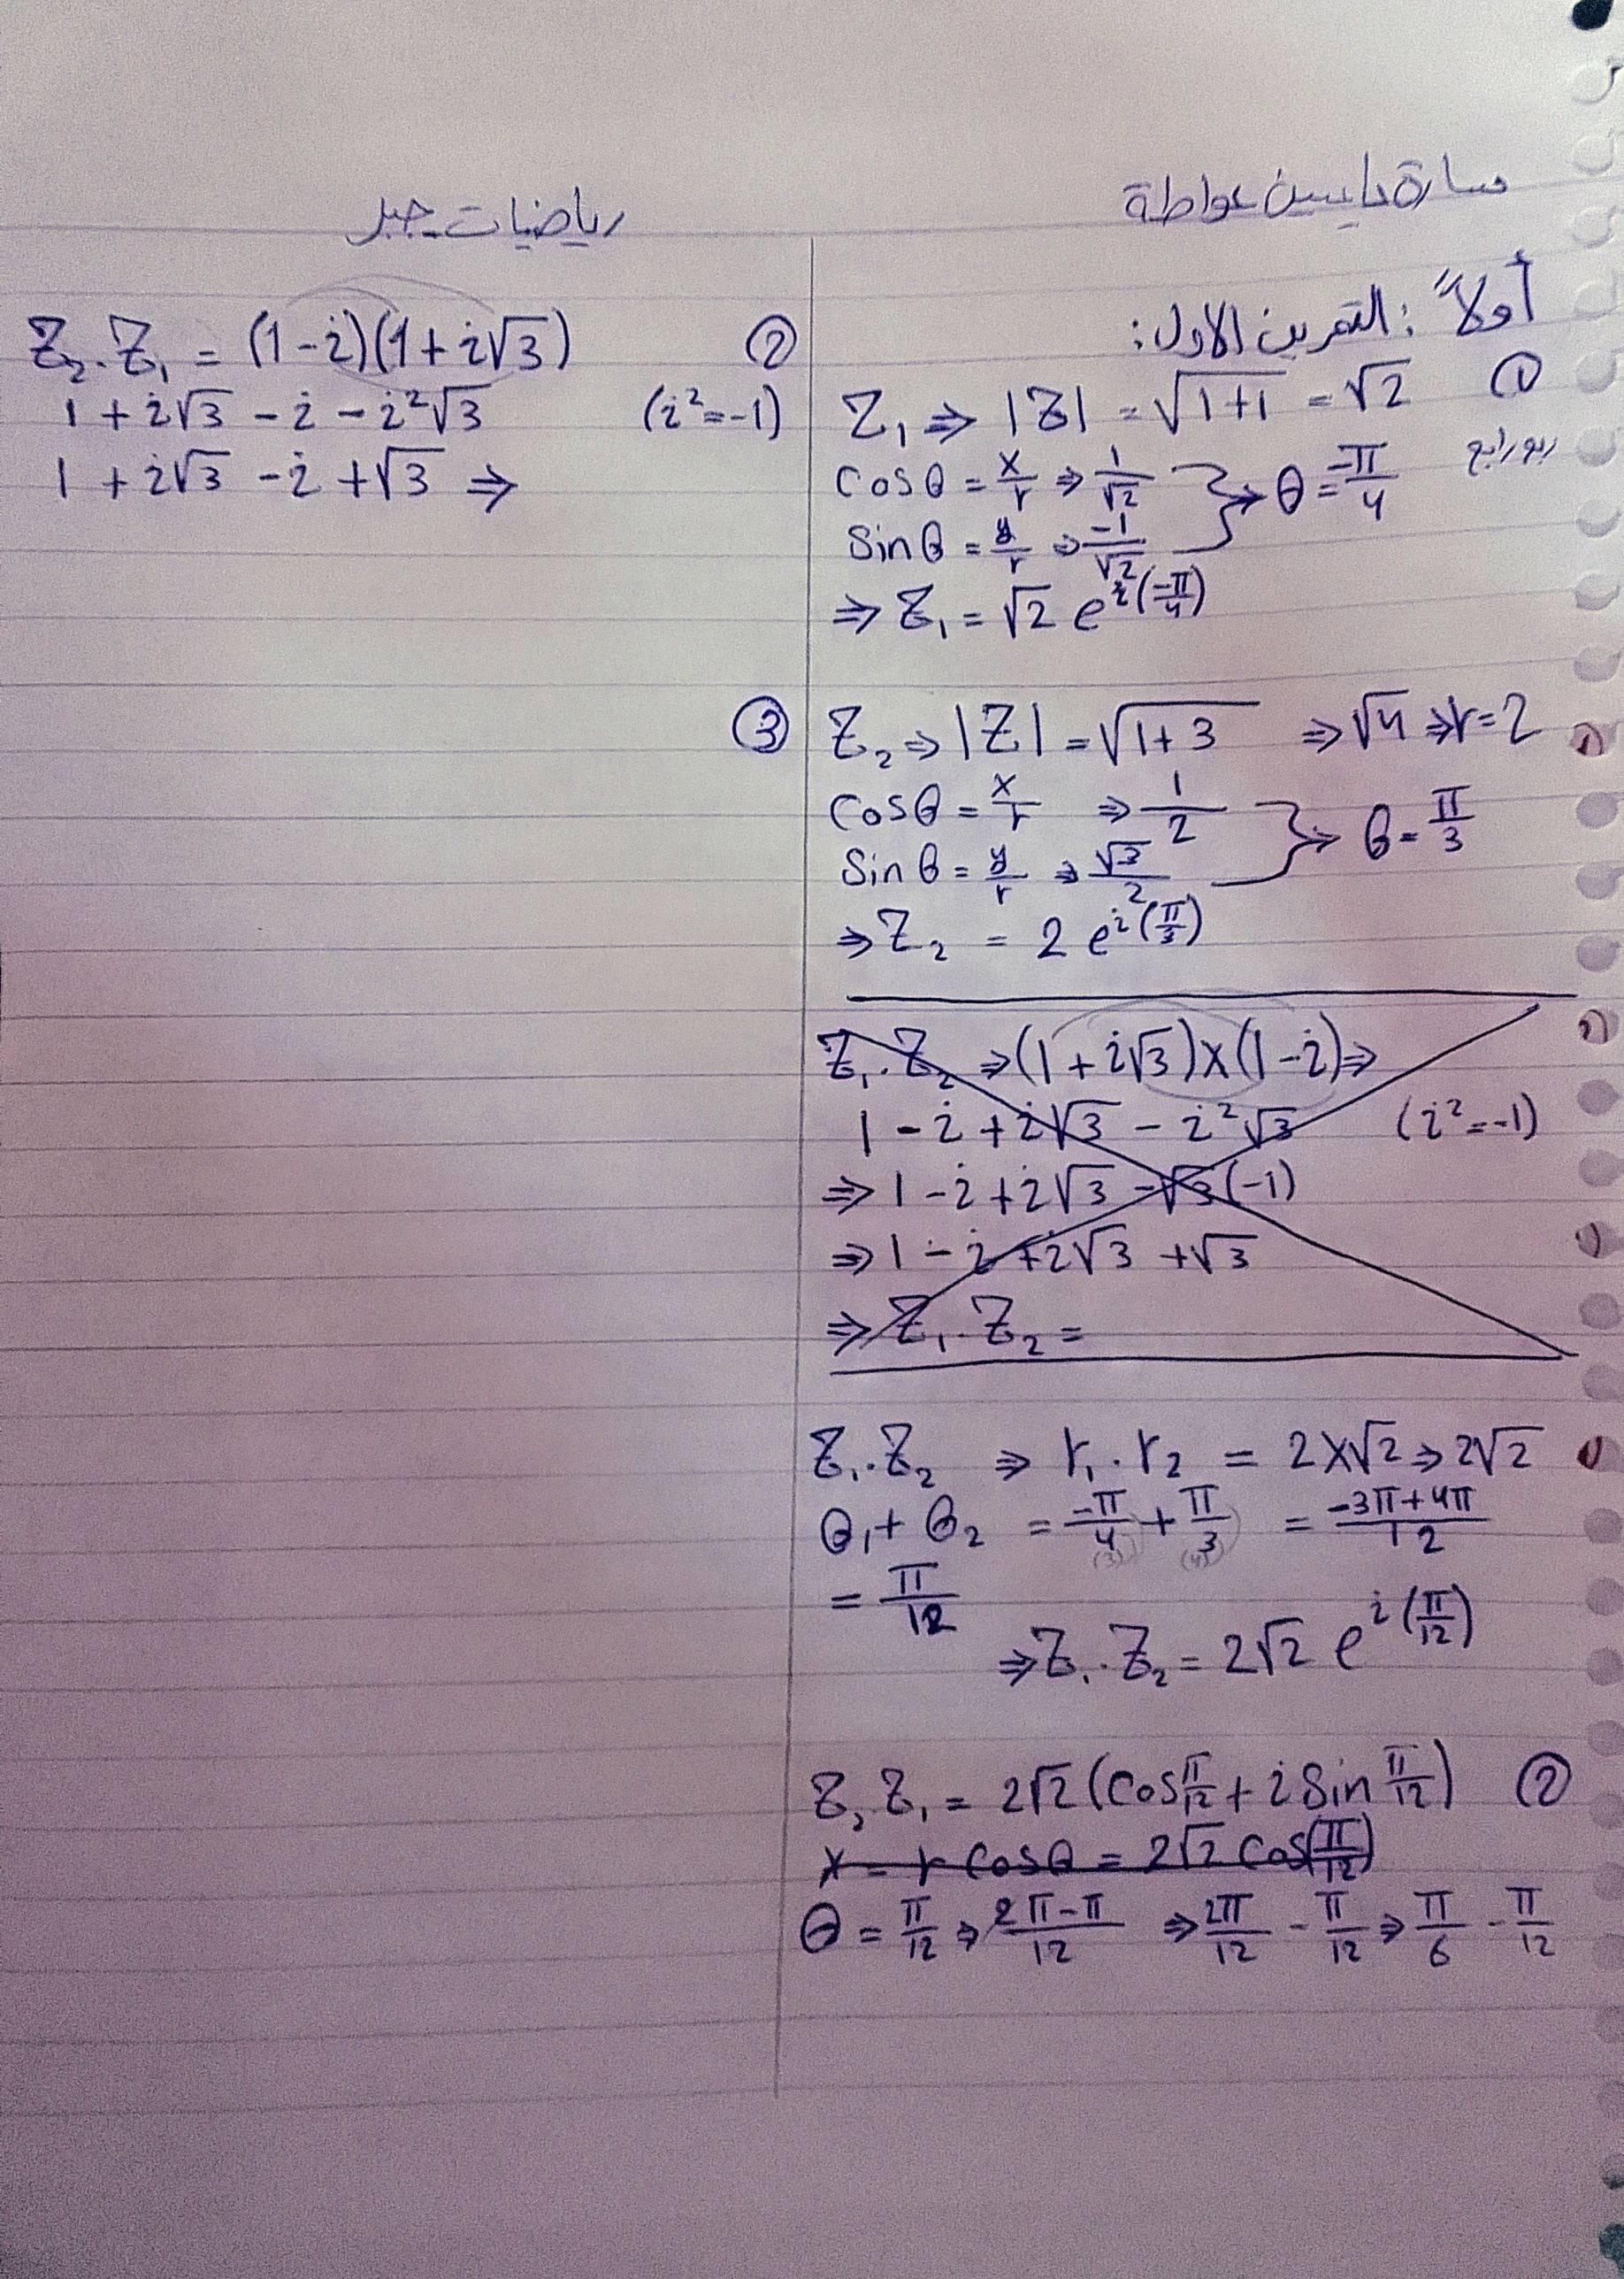 سارة ياسين عواطة
رياضيات جبر
أولاً: التمرين الاول:
①
Z₁ ⇒ |Z| = √(1+1) = √2
ربع رابع
cosθ = x/r ⇒ 1/√2
sinθ = y/r ⇒ -1/√2
} ⇒ θ = -π/4
⇒ Z₁ = √2 e^i(-π/4)
Z₂ ⇒ |Z| = √(1+3) ⇒ √4 ⇒ r = 2
cosθ = x/r ⇒ 1/2
sinθ = y/r ⇒ √3/2
} ⇒ θ = π/3
⇒ Z₂ = 2 e^i(π/3)
Z₁.Z₂ ⇒ (1+i√3)x(1-i) ⇒
1 - i + i√3 - i²√3 (i²=-1)
⇒ 1 - i + i√3 - √3(-1)
⇒ 1 - i + i√3 + √3
⇒ Z₁.Z₂ =
Z₁.Z₂ ⇒ r₁.r₂ = 2x√2 ⇒ 2√2
θ₁+θ₂ = -π/4 + π/3 = (-3π+4π)/12
(3) (4)
= π/12
⇒ Z₁.Z₂ = 2√2 e^i(π/12)
②
Z₂.Z₁ = 2√2 (cos π/12 + i sin π/12)
x = r cosθ = 2√2 cos(π/12)
θ = π/12 ⇒ (2π-π)/12 ⇒ 2π/12 - π/12 ⇒ π/6 - π/12
②
Z₂.Z₁ = (1-i)(1+i√3)
1 + i√3 - i - i²√3 (i²=-1)
1 + i√3 - i + √3 ⇒
③